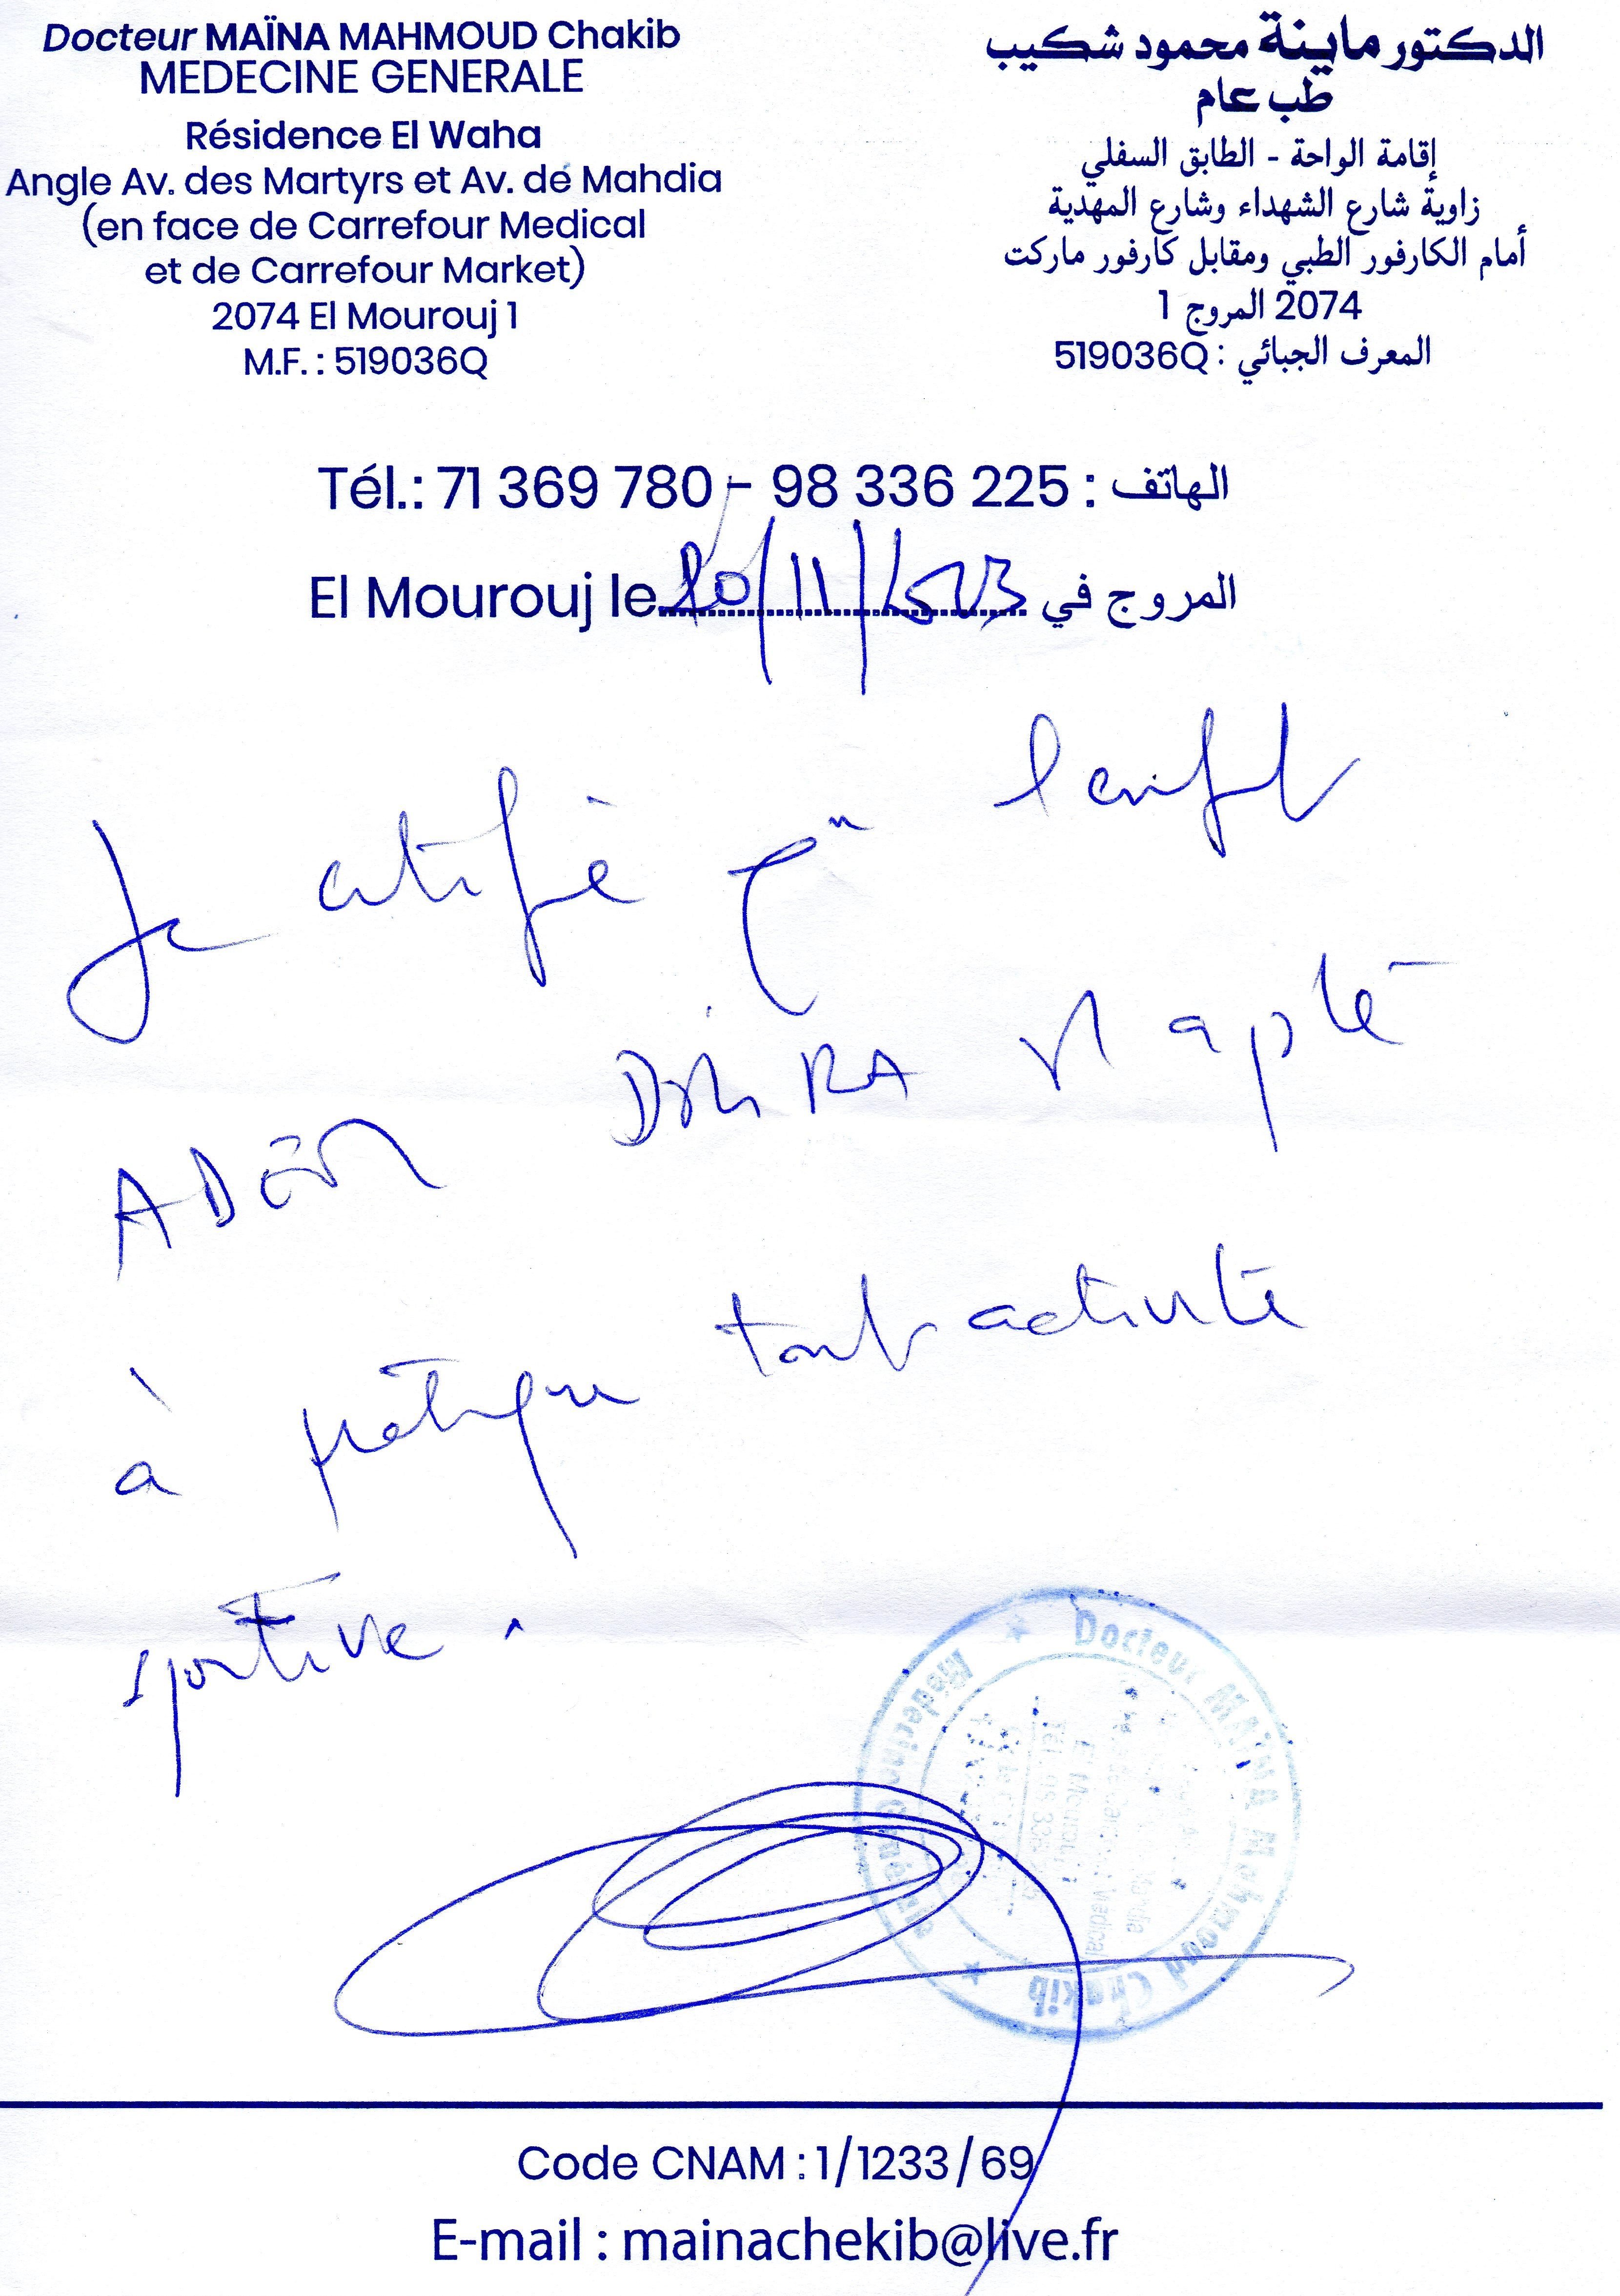 Docteur MAÏNA MAHMOUD Chakib
MEDECINE GENERALE
Résidence El Waha
Angle Av. des Martyrs et Av. de Mahdia
(en face de Carrefour Medical
et de Carrefour Market)
2074 El Mourouj 1
M.F. : 519036Q
الدكتور ماينة محمود شكيب
طب عام
إقامة الواحة - الطابق السفلي
زاوية شارع الشهداء وشارع المهدية
أمام الكارفور الطبي ومقابل كارفور ماركت
2074 المروج 1
المعرف الجبائي : 519036Q
Tél.: 71 369 780 - 98 336 225 : الهاتف
El Mourouj le 20/11/2023 المروج في
Je certifie que l'enfant
ADEM est apte
à pratiquer toute activité
sportive.
Docteur MAÏNA Mahmoud Chakib
Médecine Générale
Code CNAM : 1/1233/69
E-mail : mainachekib@live.fr